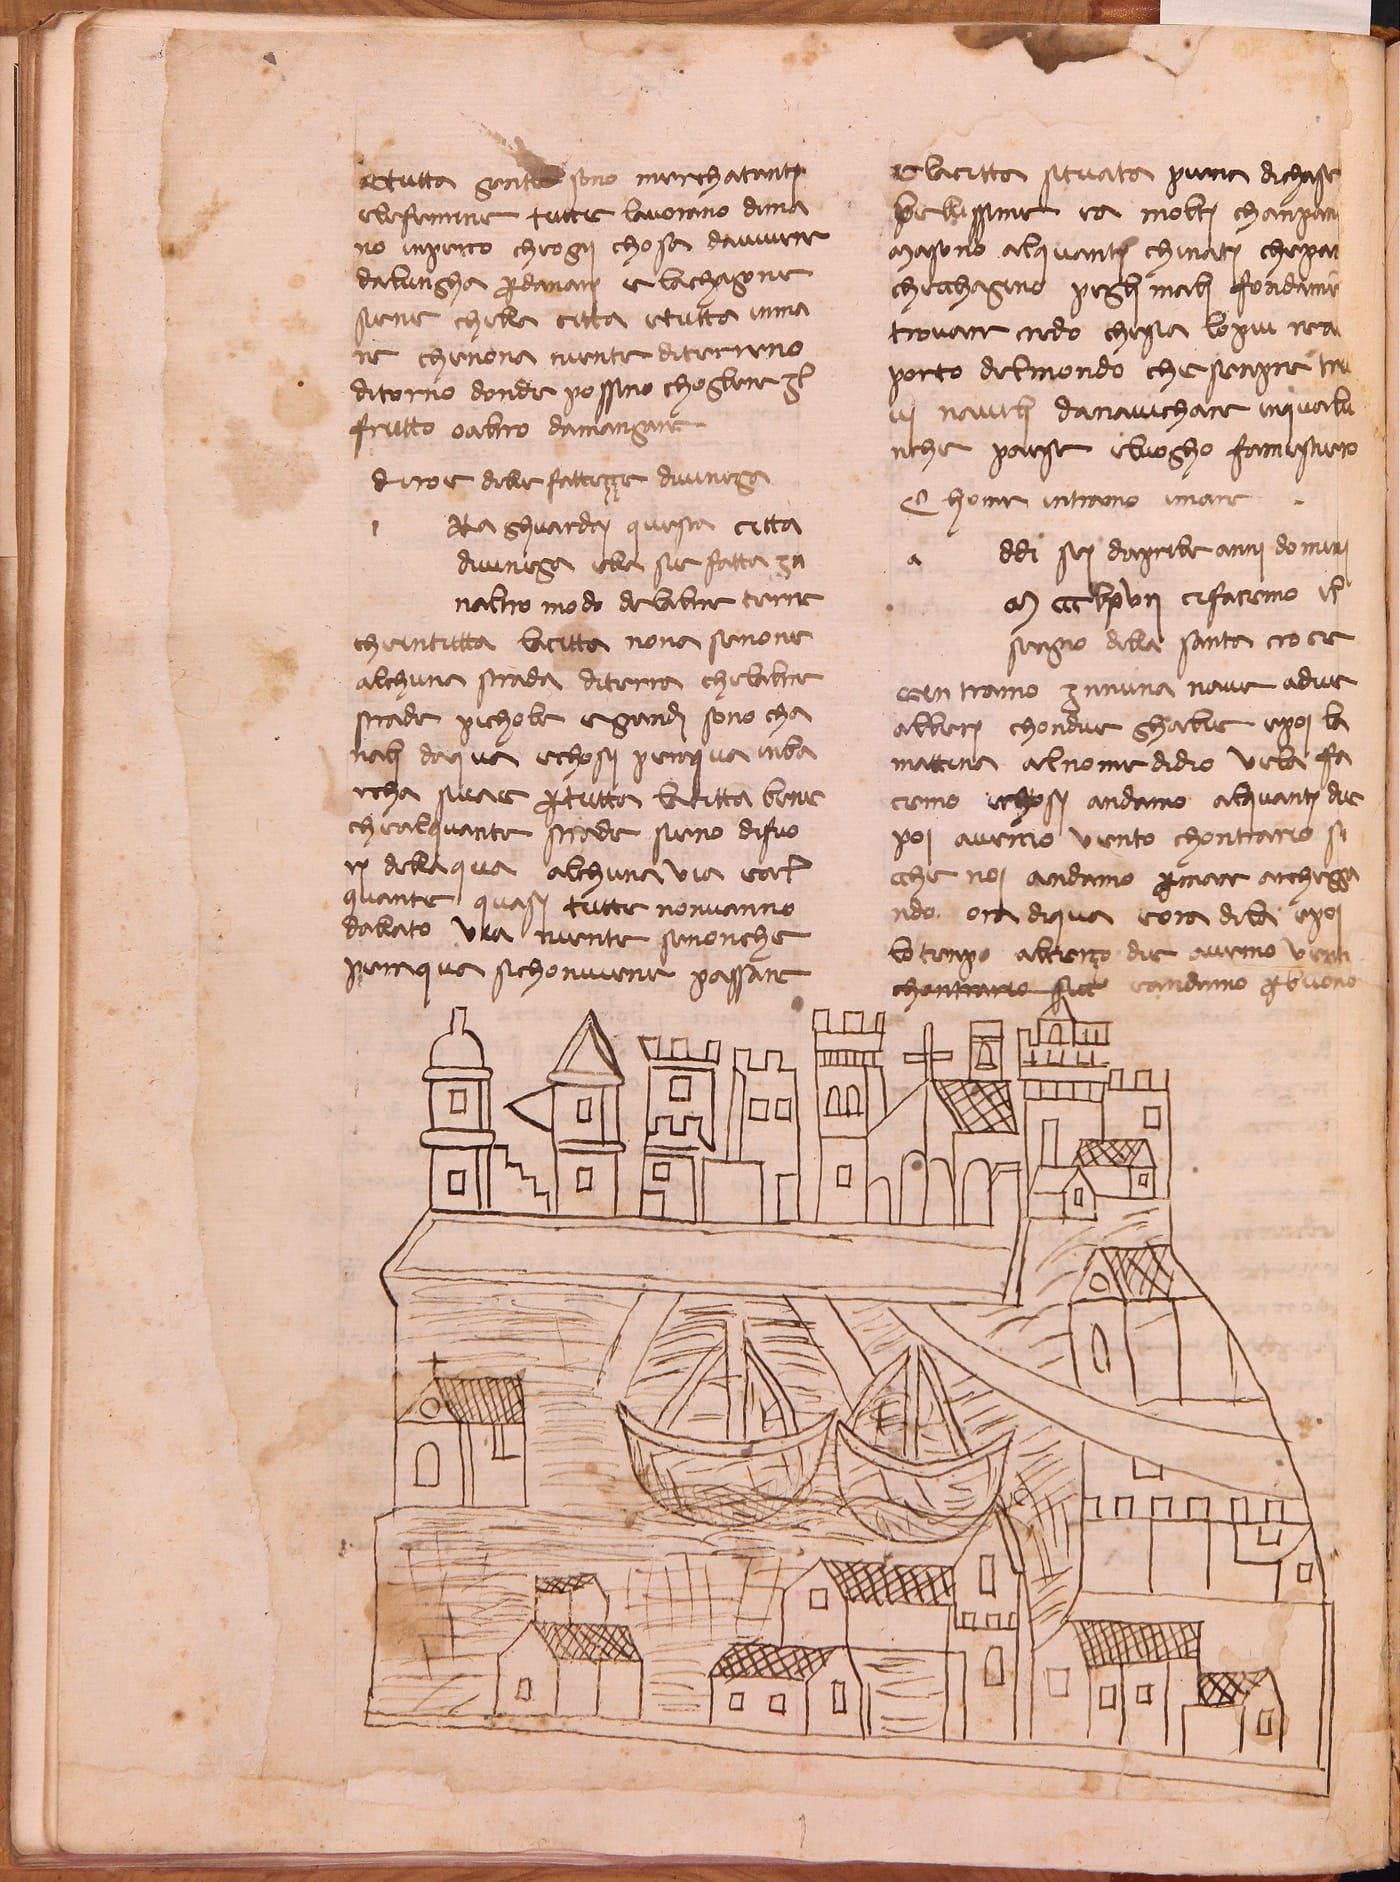 etutta gente sono merchatanti
elefemine tutte lavorano dima
no inperco cheogni chosa davivere
dalungha per danari elachagione
siene chella citta etutta inma
re chenona niente diterreno
ditorno donde possino chogliere
frutto oaltro damangiare
diroe delle fattezze divinega
Ra ghuardi questa citta
divinega ella sie fatta in
naltro modo delaltre terre
cheintutta lacitta nona senone
alchuna strada diterra chelaltre
strade pichole egrandi sono cha
nali daqua echosi peraqua inba
rcha sivae per tutta lacitta bene
chealquante strade sieno difuo
ri dellaqua alchuna via
quante quasi tutte nonvanno
dallato via niente senonche
peraqua sichonviene passare
elacitta situata piena dichase
bellissime ea molti chanpan
Masono alquanti chinati chepar
chechagino pegli mali fondame
trovare credo chesia lopiu rea
porto delmondo che senpre tru
vi navili danavichare inqualu
nche paese eluogho famestiero
Chome intramo imare
a ddi sei daprile anni domini
M ccc cifacemo il
sengno della santa croce
eentramo innuna nave adue
alberi chondue ghabie epoi la
mattina alnome didio vela fa
cemo echosi andamo alquanti die
poi avemo vento chontrario si
cche noi andamo per mare archeggia
ndo ora diqua eora dila epoi
lotenpo alterzo die avemo vent
chontrario sicc eandamo per buono